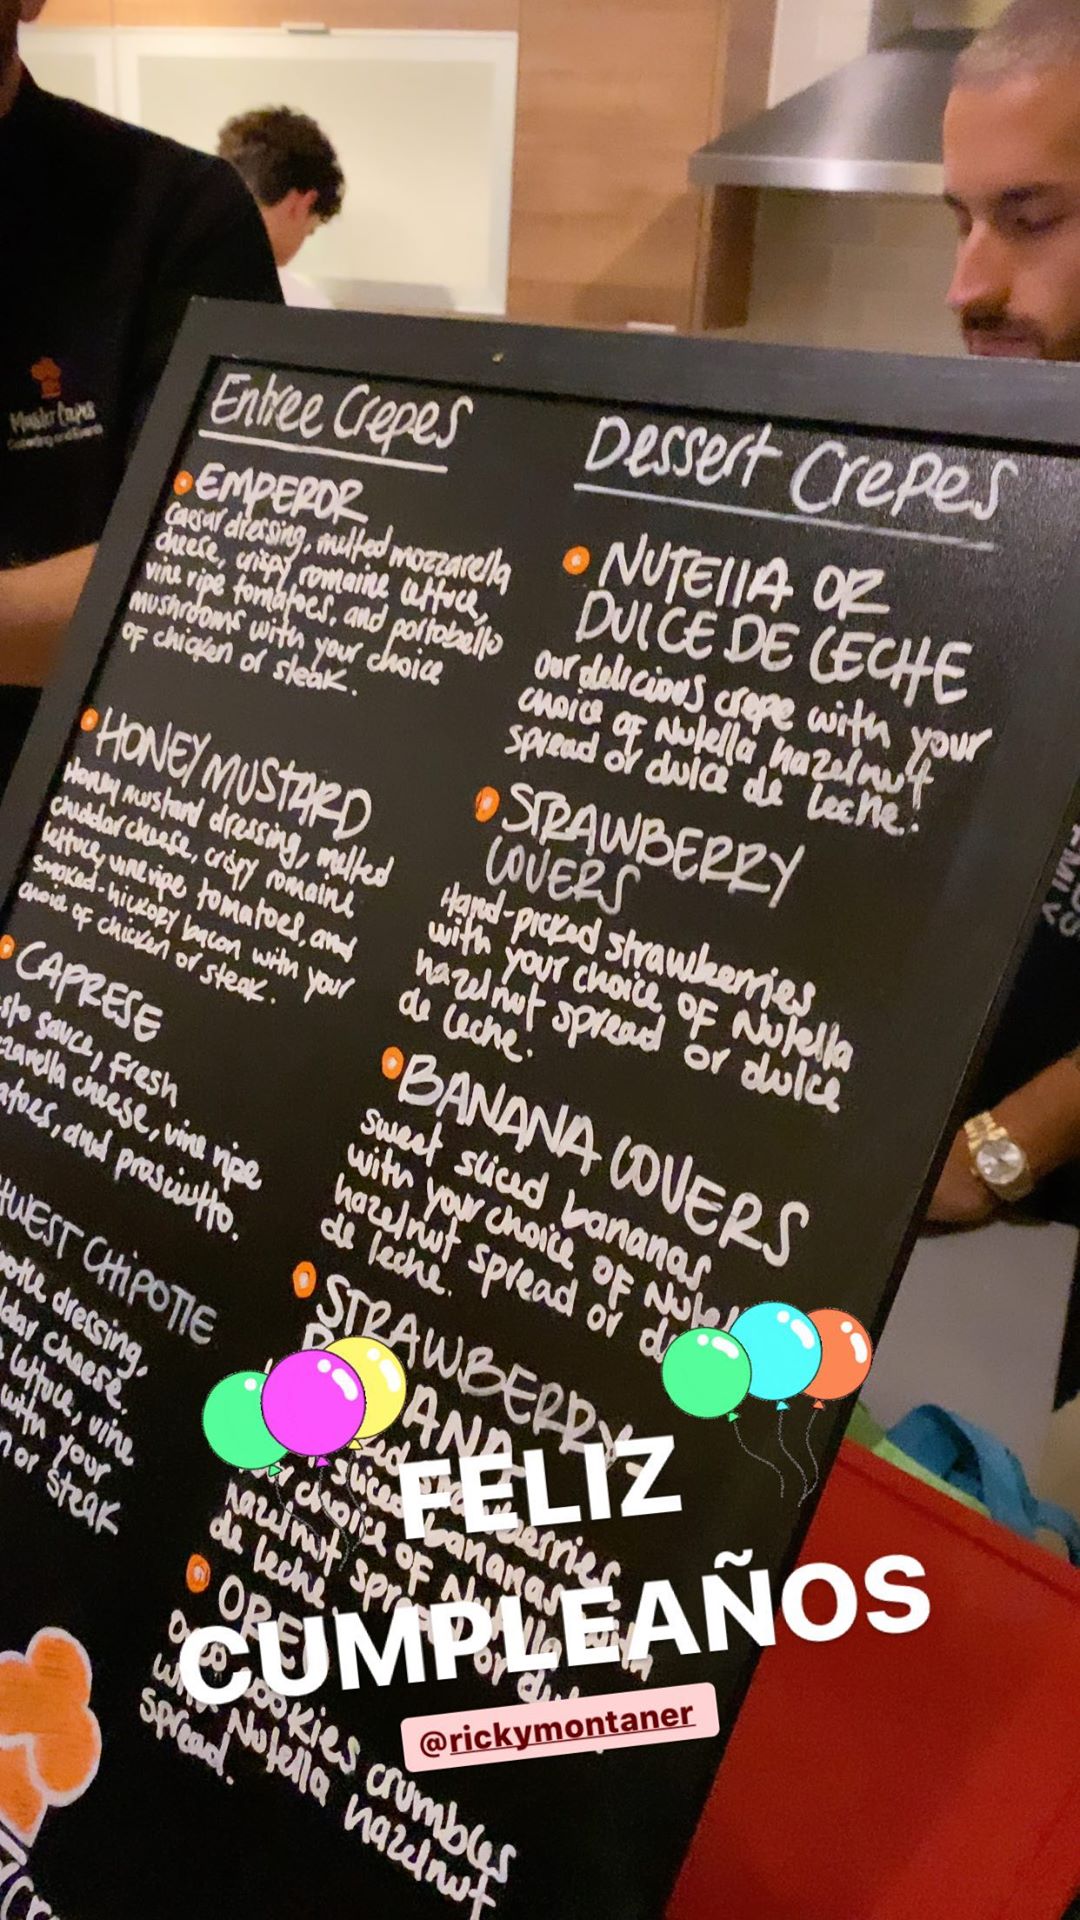 Master Crepes
Entree Crepes
EMPEROR
Caesar dressing, melted mozzarella
cheese, crispy romaine lettuce,
vine ripe tomatoes, and portobello
mushrooms with your choice
of chicken or steak.
HONEY MUSTARD
Honey mustard dressing, melted
cheddar cheese, crispy romaine
lettuce, vine ripe tomatoes, and
smoked-hickory bacon with your
choice of chicken or steak.
CAPRESE
sauce, Fresh
cheese, vine ripe
and prosciutto.
CHIPOTLE
dressing,
cheese,
lettuce, vine
with your
or steak
Dessert Crepes
NUTELLA OR
DULCE DE LECHE
our delicious crepe with your
choice of Nutella hazelnut
spread or dulce de leche.
STRAWBERRY
LOVERS
Hand-picked strawberries
with your choice of Nutella
hazelnut spread or dulce
de leche.
BANANA LOVERS
sweet sliced bananas
with your choice of
hazelnut spread or
de leche.
STRAWBERRY
bananas
choice of
hazelnut
de leche.
cookies crumbles
Nutella hazelnut
spread.
FELIZ
CUMPLEAÑOS
@rickymontaner